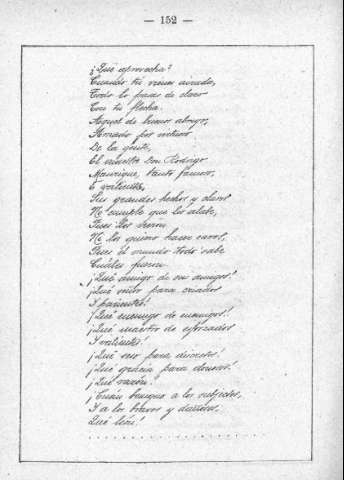 — 152 —
¿Qué aprovecha?
Cuando tú vienes airada,
Todo lo pasas de claro
Con tu flecha.
Aquel de buenos abrigo,
Amado por virtuoso
De la gente,
El maestre Don Rodrigo
Manrique, tanto famoso,
E valiente,
Sus grandes hechos y claros
No cumple que los alabe,
Pues los vieron
Ni los quiero hacer caros,
Pues el mundo todo sabe
Cuáles fueron.
¡Qué amigo de sus amigos!
¡Qué señor para criados
Y parientes!
¡Qué enemigo de enemigos!
¡Qué maestro de esforzados
Y valientes!
¡Qué seso para discretos!
¡Qué gracia para donosos!
¡Qué razón!
¡Cuán benigno a los sujetos,
Y a los bravos y dañosos,
Qué león!